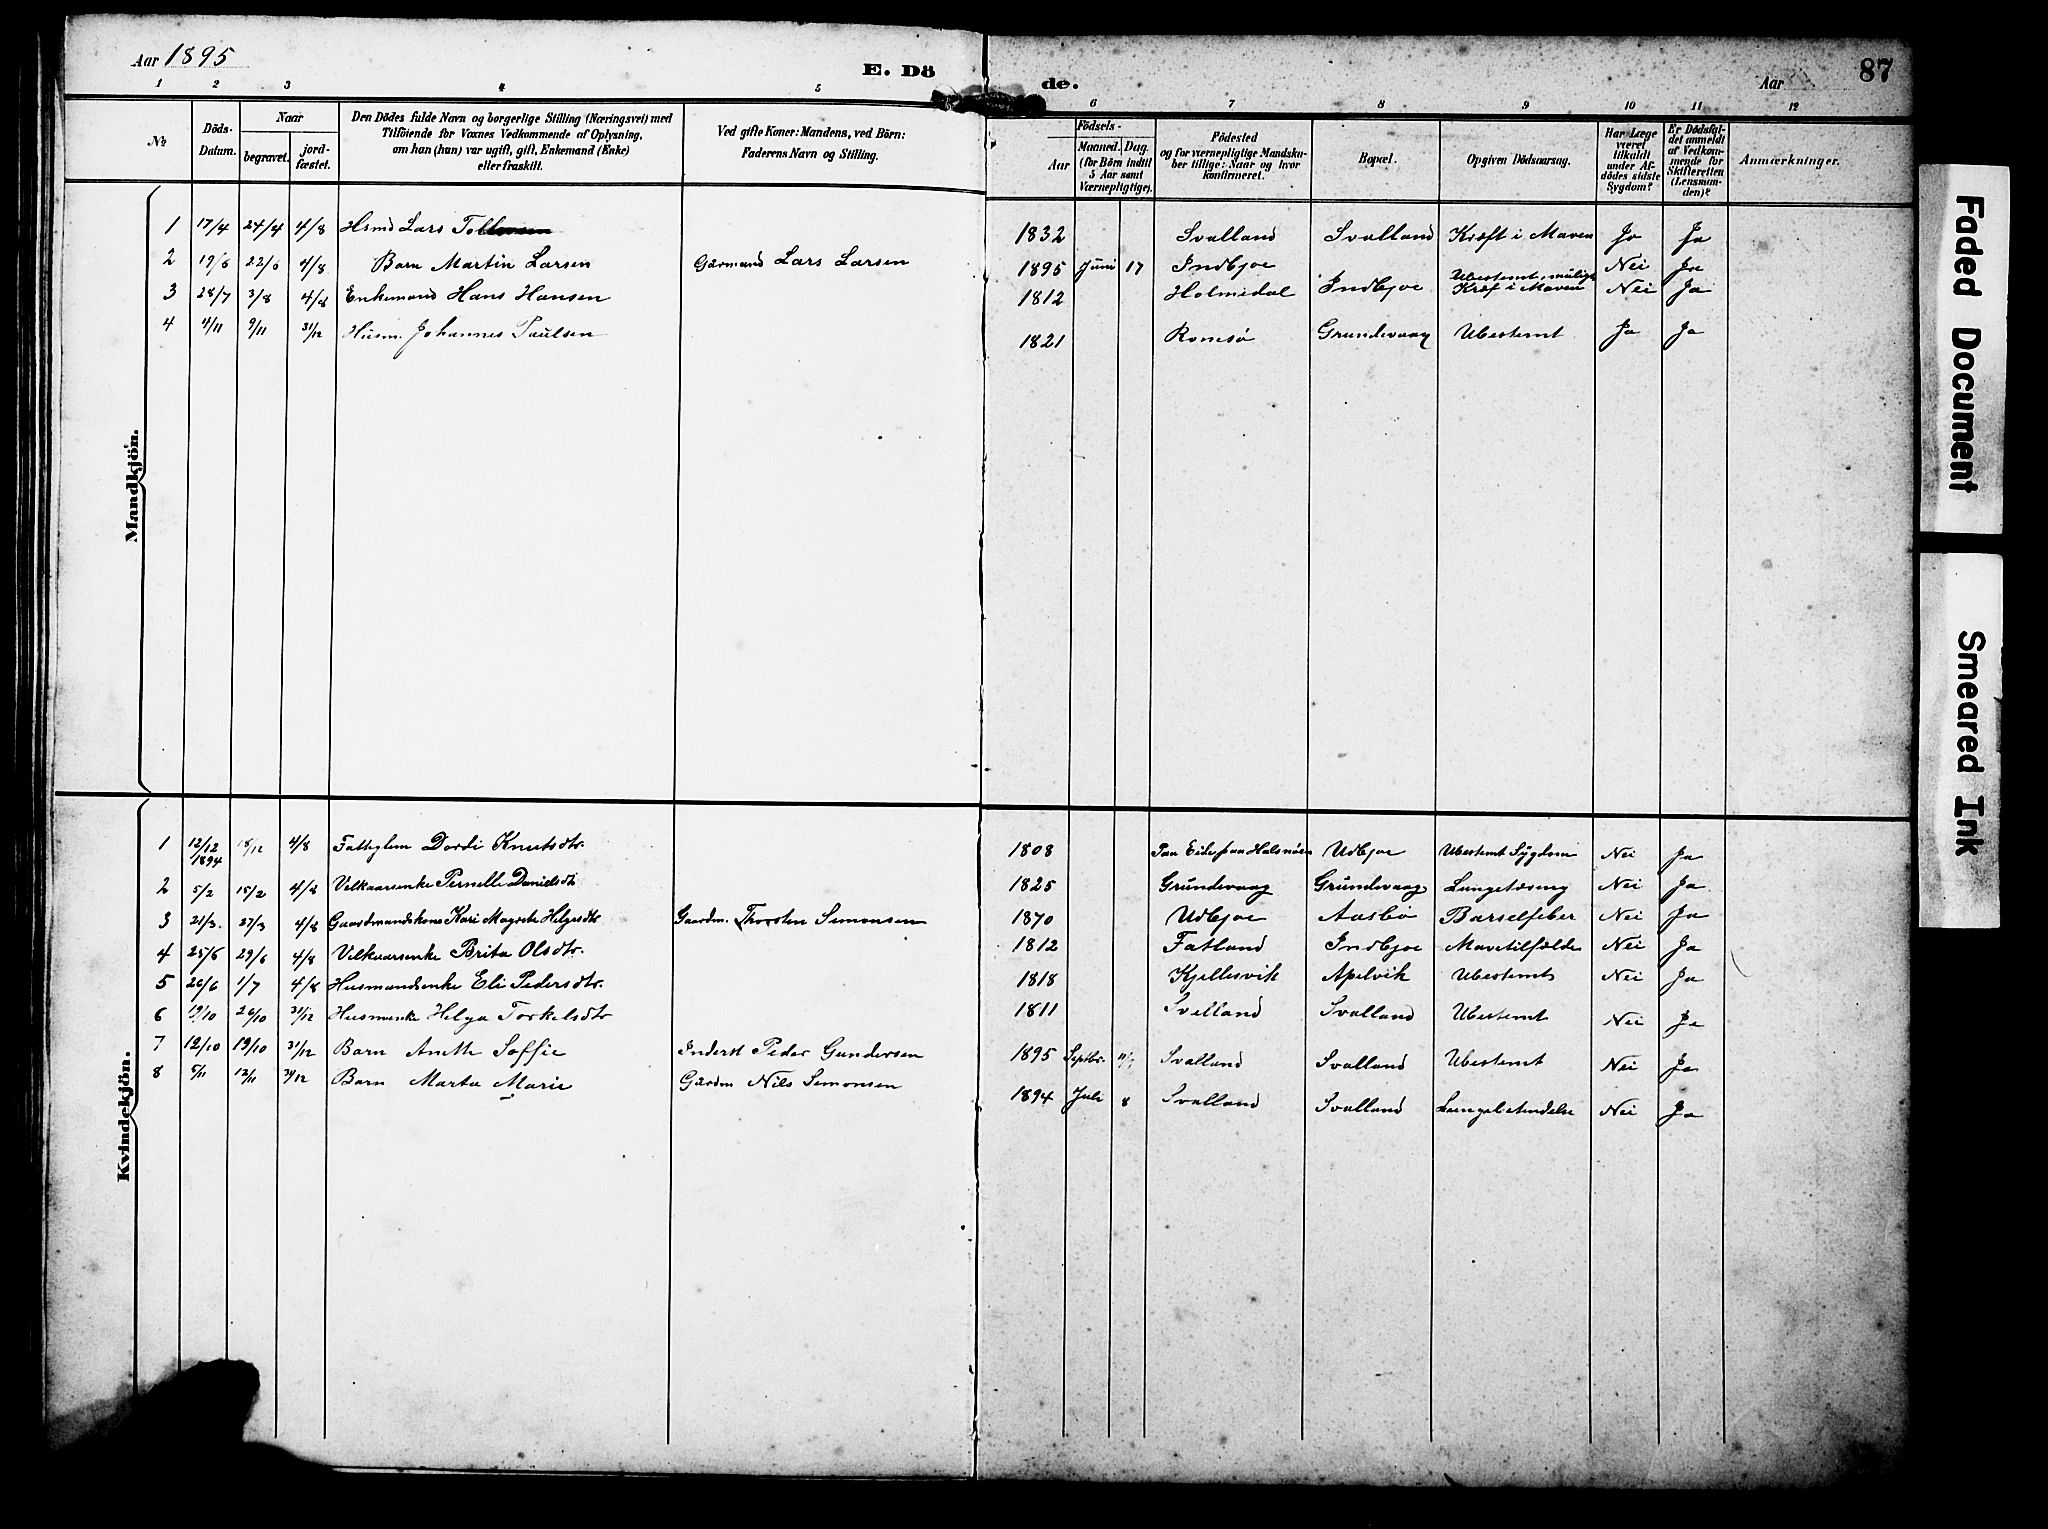 Aar 1895
E. Dö de.
Aar 87
1 2 3 4 5 6 7 8 9 10 11 12
№ Döds-Datum. Naar begravet. jord-fæstet. Den Dödes fulde Navn og borgerlige Stilling (Næringsvei) med Tilföiende for Voxnes Vedkommende af Oplysning, om han (hun) var ugift, gift, Enkemand (Enke) eller fraskilt. Ved gifte Koner: Mandens, ved Börn: Faderens Navn og Stilling. Födsels- Aar Maaned. Dag. (for Börn indtil 5 Aar samt Værnepligtige). Födested og for værnepligtige Mandskaber tillige: Naar og hvor konfirmeret. Bopæl. Opgiven Dödsaarsag. Har Læge været tilkaldt under Afdödes sidste Sygdom? Er Dödsfaldet anmeldt af Vedkommende for Skifteretten (Lensmanden)? Anmærkninger.
Mandkjön.
1 17/4 24/4 4/8 Hsmd Lars 1832 Svalland Svalland Kræft i Maven Jo Ja
2 19/6 22/6 4/8 Barn Martin Larsen Garmand Lars Larsen 1895 Juni 17 Indbjoe Nei Ja
3 28/7 3/8 4/8 Enkemand Hans Hansen 1812 Holmedal Indbjoe Ubestemt, mulig Kræf i Maven Nei Ja
4 4/11 9/11 31/12 Husm. Johannes Paulsen 1821 Romsö Grundevaag Ubestemt Ja Ja
Kvindekjön.
1 12/12 1894 18/12 4/8 Fattiglem Dordi Knutsdtr. 1808 Paa Eide paa Halsnöen Udbjoe Ubestemt Sygdom Nei Ja
2 5/2 15/2 4/8 Velkaarsenke Pernelle Danielsdtr 1825 Grundevaag Grundevaag Lungetæring Nei Ja
3 21/3. 27/3 4/8 Gaardmandskone Kari Magrete Helgesdtr Gaardm. Thorsten Simonsen 1870 Udbjoe Aasbö Barselfeber Nei Ja
4 25/6 29/6 4/8 Velkaarsenke Brita Olsdtr. 1812 Fatland Indbjoe Mavetilfælde Nei Ja
5 26/6 1/7 4/8 Husmandsenke Eli Pedersdtr. 1818 Kjellesvik Apelvik Ubestemt Nei Ja
6 19/10 26/10 31/12 Husmenke Helga Torkelsdtr 1811 Svelland Svalland Ubestemt Nei Ja
7 12/10 19/10 31/12 Barn Anette Soffie Inderst Peder Gundersen 1895 Septbr. Svalland Svalland Ubestemt Nei Ja
8 5/11 12/11 31/12 Barn Marta Marie Gardm Nils Simonsen 1894 Juli 8 Svalland Svalland Lungebetændelse Nei Ja
Faded Document
Smeared Ink